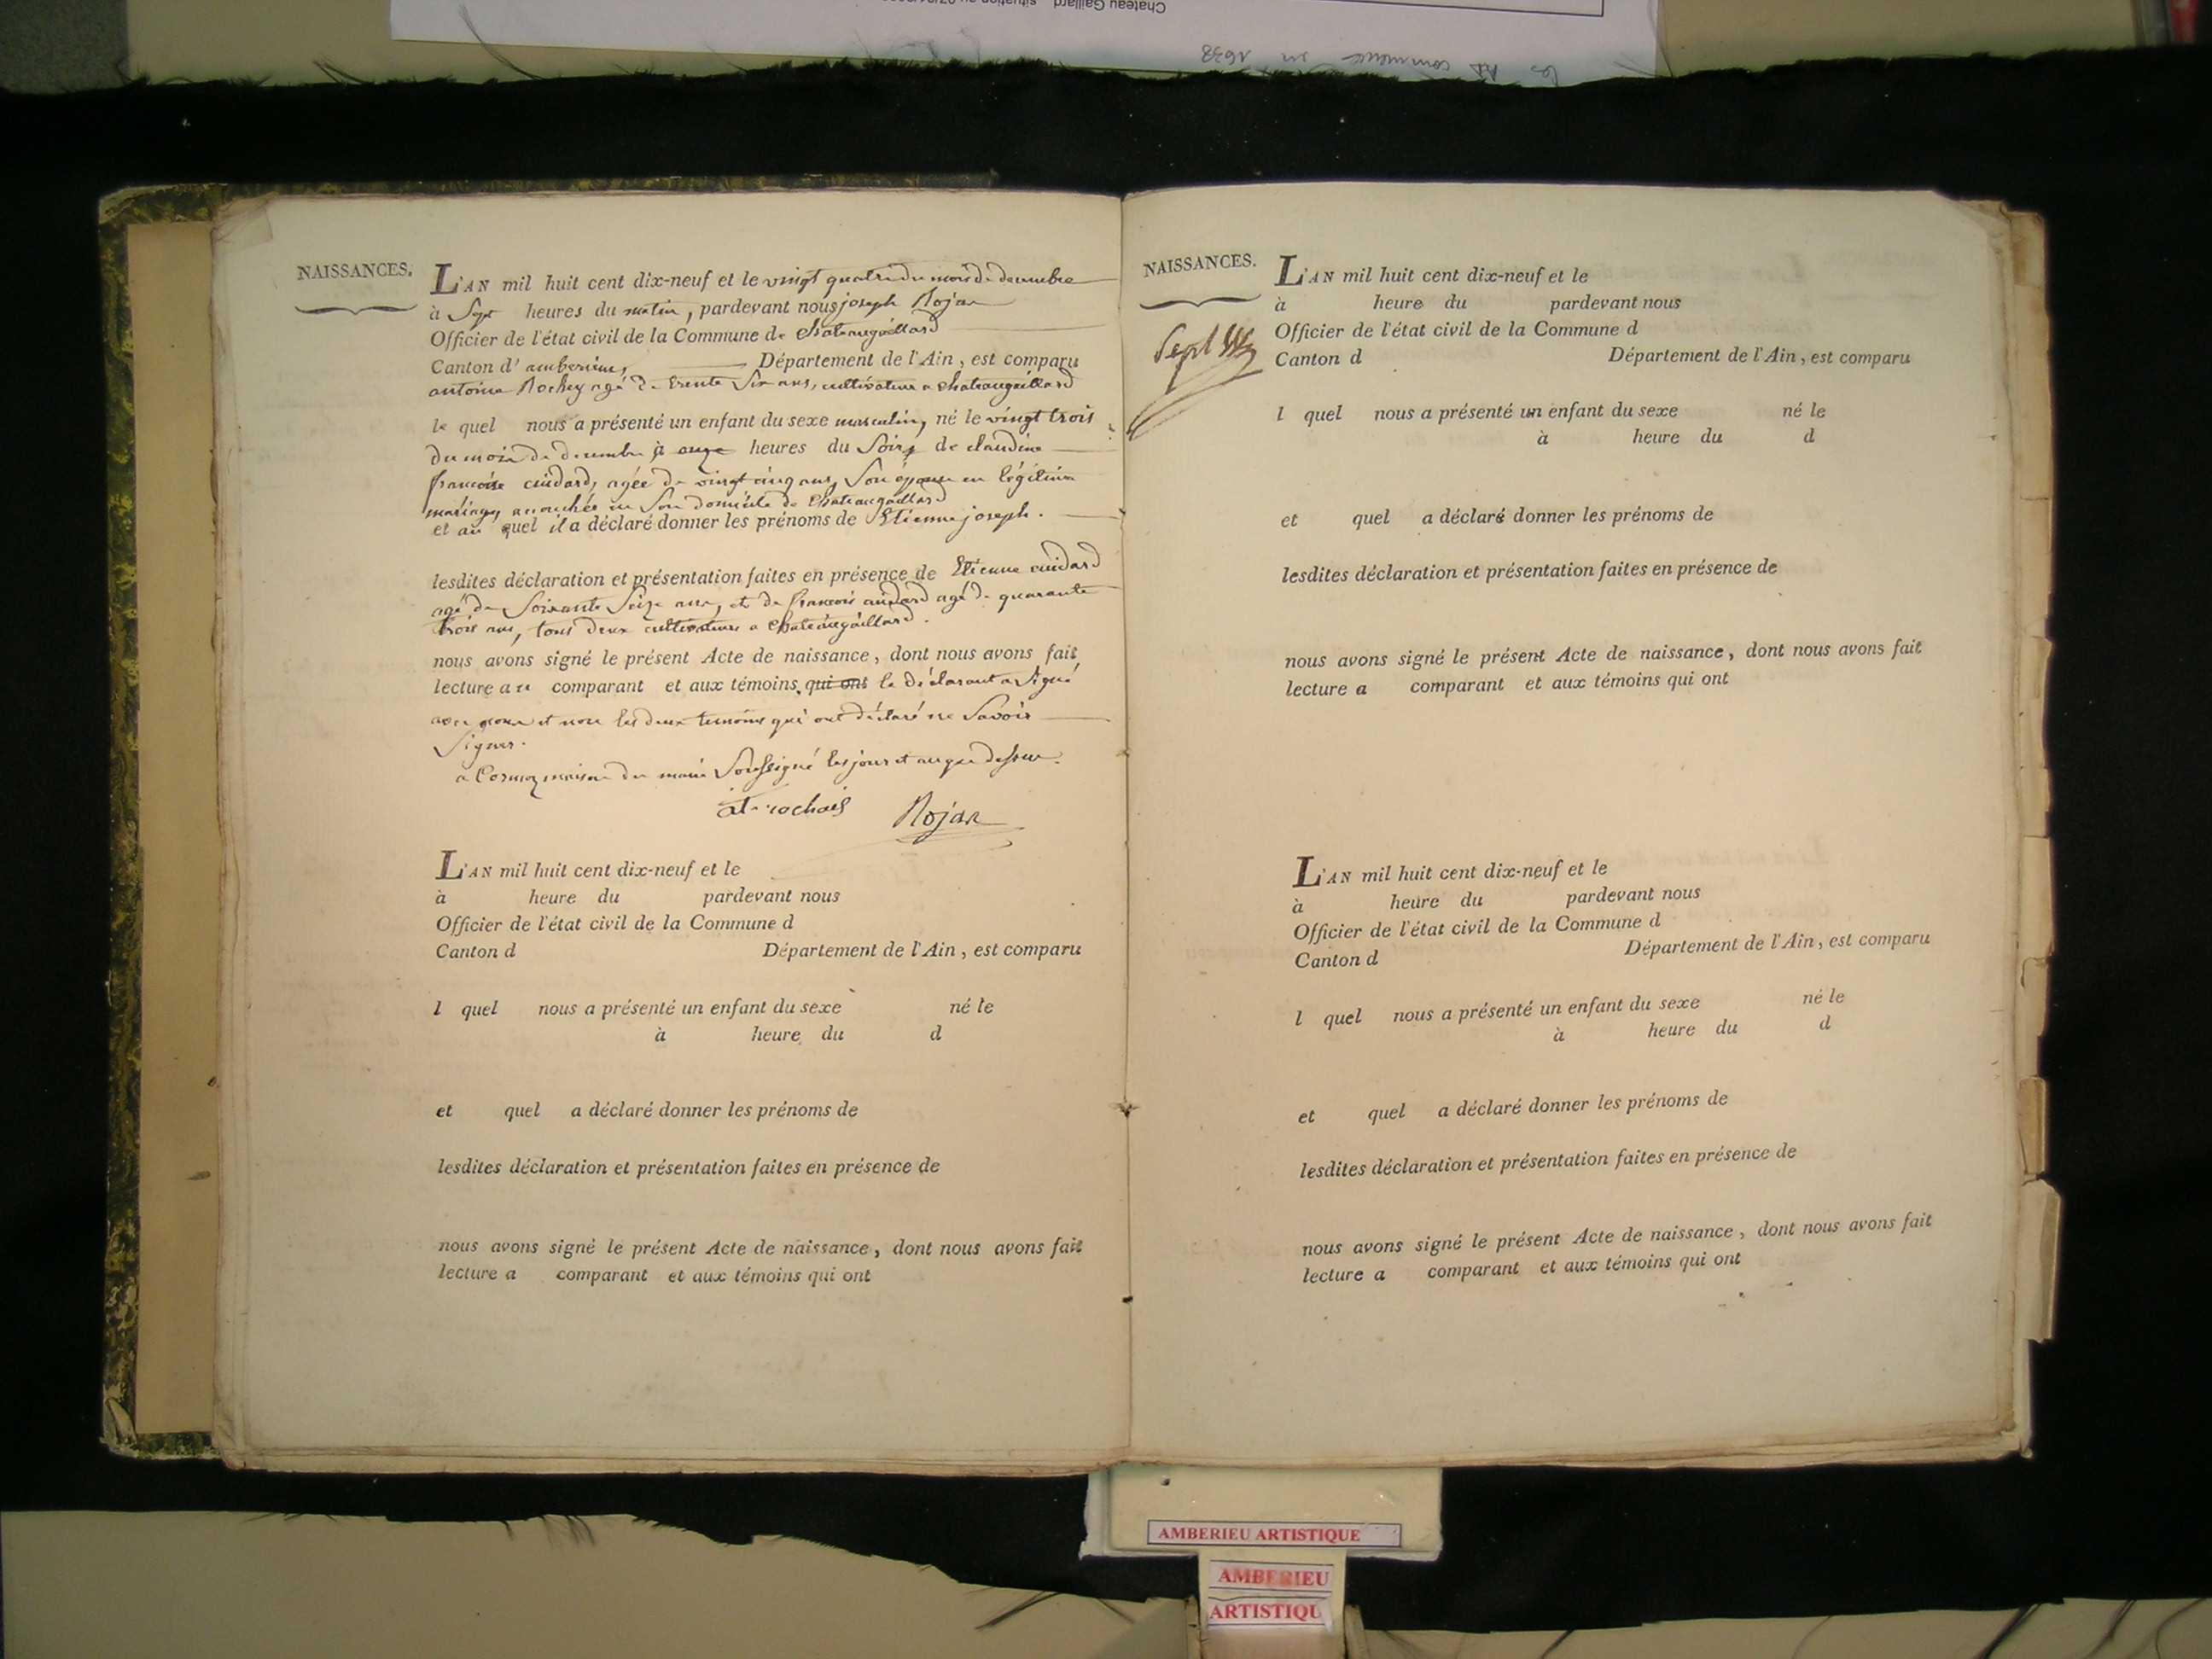 Chateau Gaillard situation au
commence en 1638
NAISSANCES.
L'AN mil huit cent dix-neuf et le vingt quatre du mois de decembre
à Sept heures du matin, pardevant nous joseph Rojan
Officier de l'état civil de la Commune de Chateaugaillard
Canton d'amberieu, Département de l'Ain, est comparu
antoine Rochey agé de trente Six ans, cultivateur a chateaugaillard
le quel nous a présenté un enfant du sexe masculin, né le vingt trois
du mois de decembre à onze heures du Soir, de claudine
francoise cuidard, agée de vingt cinq ans, Son épouse en légitime
mariage, accouchée en Son domicile de Chateaugaillard
et au quel il a déclaré donner les prénoms de Etienne joseph.
lesdites déclaration et présentation faites en présence de Etienne cuidard
agé de Soixante Seize ans, et de francois cuidard agé de quarante
trois ans, tous deux cultivateurs a Chateaugaillard.
nous avons signé le présent Acte de naissance, dont nous avons fait
lecture au comparant et aux témoins, qui ont le déclarant a Signé
avec nous et non les deux temoins qui ont déclaré ne Savoir
Signer.
a Cormoz maison du maire Soussigné les jour et an que dessus.
at rochais Rojan
L'AN mil huit cent dix-neuf et le
à heure du pardevant nous
Officier de l'état civil de la Commune d
Canton d Département de l'Ain, est comparu
l quel nous a présenté un enfant du sexe né le
à heure du d
et quel a déclaré donner les prénoms de
lesdites déclaration et présentation faites en présence de
nous avons signé le présent Acte de naissance, dont nous avons fait
lecture a comparant et aux témoins qui ont
NAISSANCES.
Sept
L'AN mil huit cent dix-neuf et le
à heure du pardevant nous
Officier de l'état civil de la Commune d
Canton d Département de l'Ain, est comparu
l quel nous a présenté un enfant du sexe né le
à heure du d
et quel a déclaré donner les prénoms de
lesdites déclaration et présentation faites en présence de
nous avons signé le présent Acte de naissance, dont nous avons fait
lecture a comparant et aux témoins qui ont
L'AN mil huit cent dix-neuf et le
à heure du pardevant nous
Officier de l'état civil de la Commune d
Canton d Département de l'Ain, est comparu
l quel nous a présenté un enfant du sexe né le
à heure du d
et quel a déclaré donner les prénoms de
lesdites déclaration et présentation faites en présence de
nous avons signé le présent Acte de naissance, dont nous avons fait
lecture a comparant et aux témoins qui ont
AMBERIEU ARTISTIQUE
AMBERIEU
ARTISTIQU